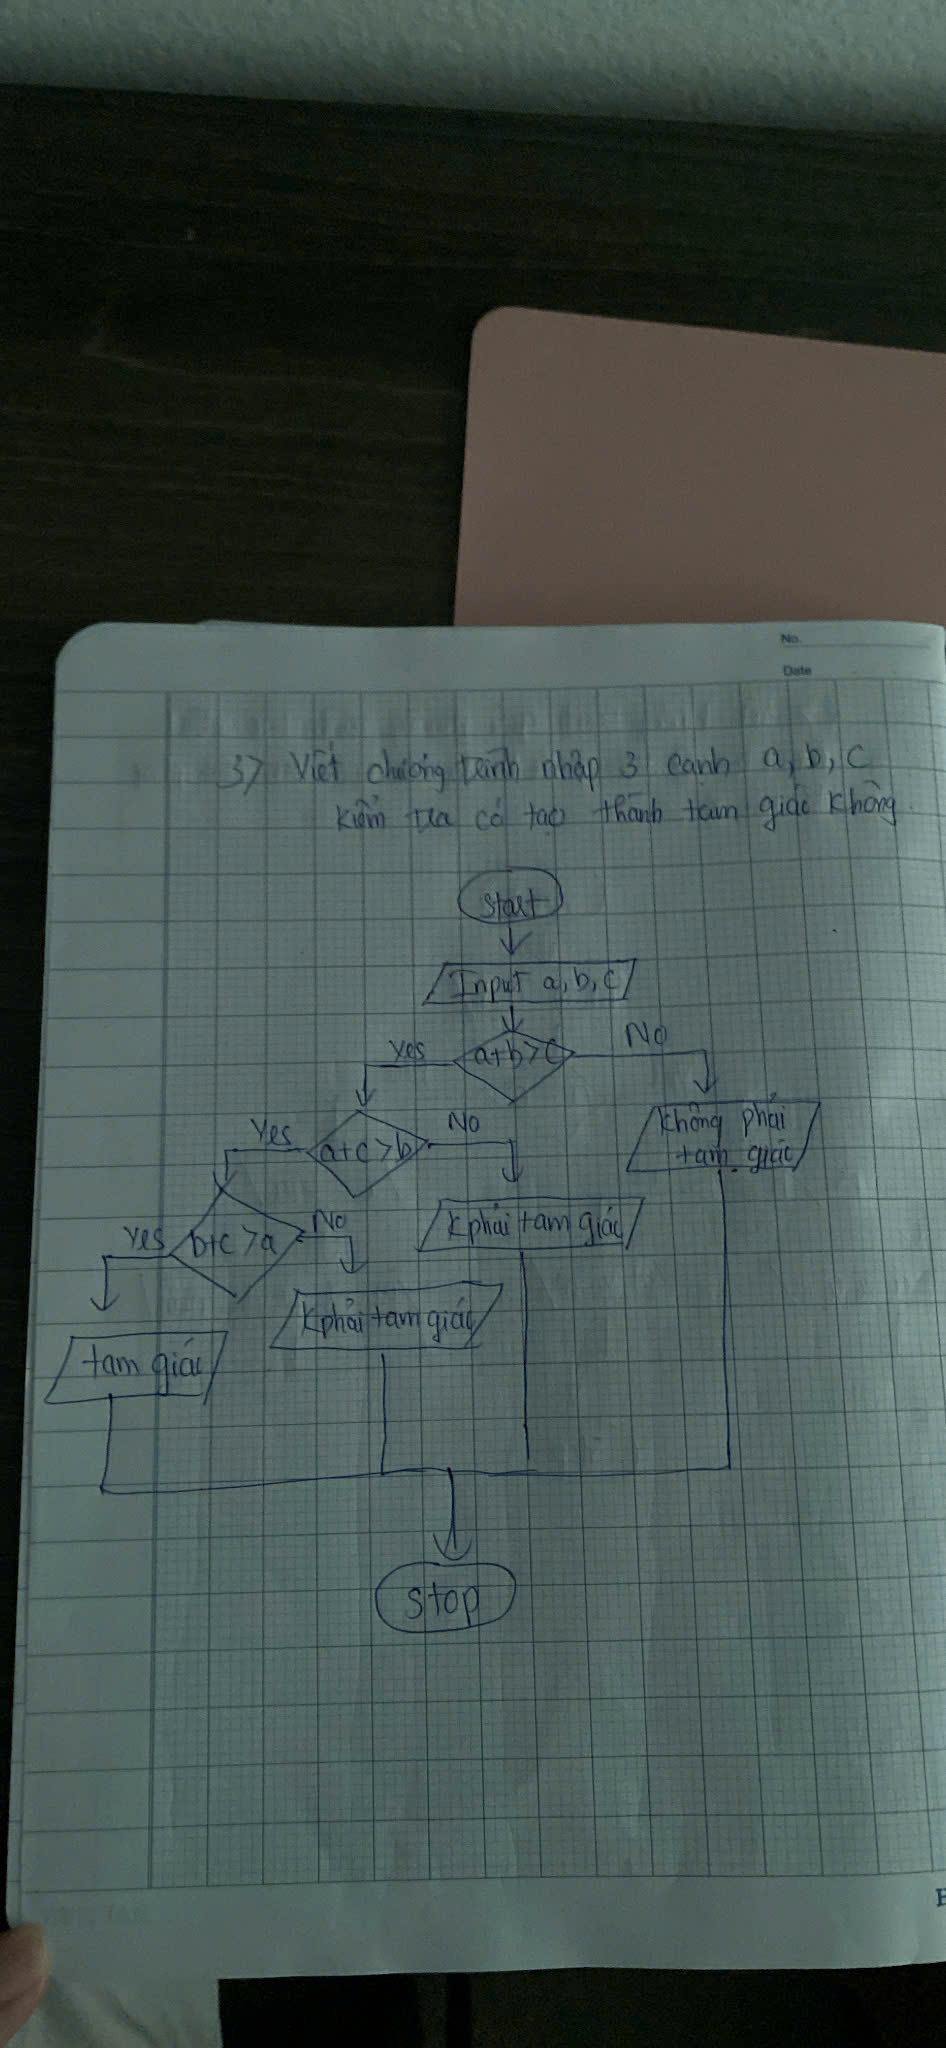 No.
Date
3) Viết chương trình nhập 3 cạnh a, b, c
kiểm tra có tạo thành tam giác không
Start
Input a, b, c
a+b>c
Yes
No
a+c>b
Yes
No
Không phải
tam giác
b+c>a
Yes
No
K phải tam giác
K phải tam giác
tam giác
stop